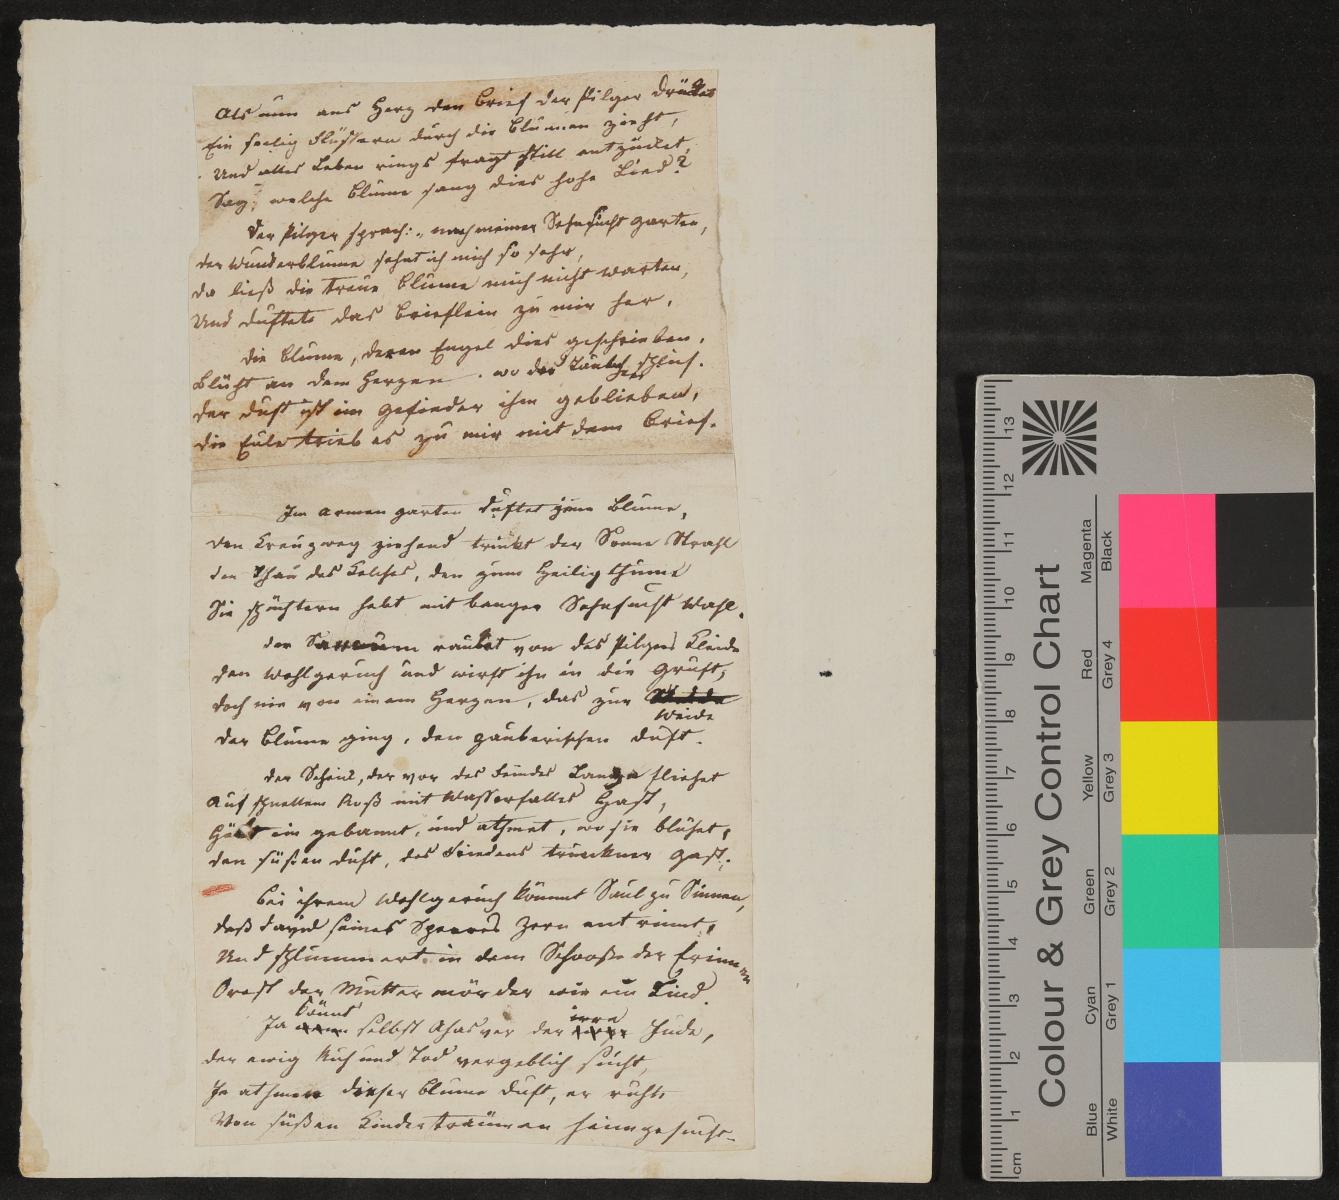 Als nun ans Herz den Brief der Pilger drücket
Ein seelig Flüstern durch die Blumen zieht,
Und alles Leben rings fragt still entzücket,
Sag, welche Blume sang dies hohe Lied?
Der Pilger sprach: „nach meiner Sehnsucht Garten,
der Wunderblume sehnt ich mich so sehr,
da ließ die treue Blume mich nicht warten,
Und duftete das Brieflein zu mir her.
die Blume, deren Engel dies geschrieben,
Blüht an dem Herzen, wo das Täubchen schlief.
der Duft ist im Gefieder ihm geblieben,
die Eule trieb es zu mir mit dem Brief.
Im armen Garten duftet jene Blume,
den Kreuzweg ziehend trinkt der Sonne Strahl
den Thau des Kelches, den zum Heiligthume
Sie schüchtern hebt mit banger Sehnsucht Wahl.
der Samum raubet von des Pilgers Kleide
den Wohlgeruch und wirft ihn in die Gruft,
doch nie von einem Herzen, das zur
Weide
der Blume ging, den zauberischen Duft.
der Scheik, der vor des Feindes Lanze fliehet
Auf schnellem Roß mit Wasserfalles Hast,
Hält ein gebannt, und athmet, wo sie blühet,
den süßen Duft, des Friedens trunkner Gast.
Bei ihrem Wohlgeruch kömmt Saul zu Sinnen,
daß David seines Speeres Zorn entrinnt,
Und schlummert in dem Schooße der Erinnen
Orest der Muttermörder wie ein Kind.
Ja könnt selbst Ahasver der irre Jude,
der ewig Ruh und Tod vergeblich sucht,
Je athmen dieser Blume Duft, er ruhte
Von süßen Kinderträumen heimgesucht.
Colour & Grey Control Chart
Blue Cyan Green Yellow Red Magenta
White Grey 1 Grey 2 Grey 3 Grey 4 Black
cm 1 2 3 4 5 6 7 8 9 10 11 12 13